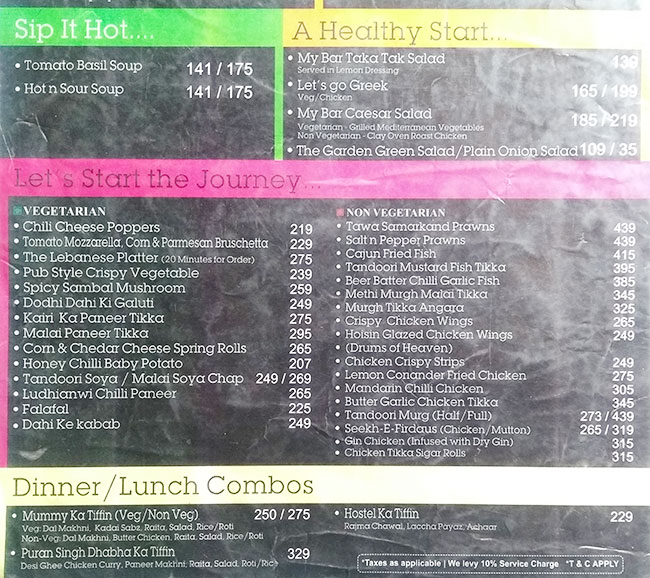 Sip It Hot....
• Tomato Basil Soup 141 / 175
• Hot n Sour Soup 141 / 175
A Healthy Start...
• My Bar Taka Tak Salad 139
Served in Lemon Dressing
• Let's go Greek 165 / 199
Veg/Chicken
• My Bar Caesar Salad 185 / 219
Vegetarian - Grilled Mediterranean Vegetables
Non Vegetarian - Clay Oven Roast Chicken
• The Garden Green Salad/Plain Onion Salad 109 / 35
Let's Start the Journey...
VEGETARIAN
• Chili Cheese Poppers 219
• Tomato Mozzarella, Corn & Parmesan Bruschetta 229
• The Lebanese Platter (20 Minutes for Order) 275
• Pub Style Crispy Vegetable 239
• Spicy Sambal Mushroom 259
• Dodhi Dahi Ki Galuti 249
• Kairi Ka Paneer Tikka 275
• Malai Paneer Tikka 295
• Corn & Chedar Cheese Spring Rolls 265
• Honey Chilli Baby Potato 207
• Tandoori Soya / Malai Soya Chap 249 / 269
• Ludhianwi Chilli Paneer 265
• Falafal 225
• Dahi Ke kabab 249
NON VEGETARIAN
• Tawa Samarkand Prawns 439
• Salt n Pepper Prawns 439
• Cajun Fried Fish 415
• Tandoori Mustard Fish Tikka 395
• Beer Batter Chilli Garlic Fish 385
• Methi Murgh Malai Tikka 345
• Murgh Tikka Angara 325
• Crispy Chicken Wings 265
• Hoisin Glazed Chicken Wings 249
• (Drums of Heaven)
• Chicken Crispy Strips 249
• Lemon Coriander Fried Chicken 275
• Mandarin Chilli Chicken 305
• Butter Garlic Chicken Tikka 345
• Tandoori Murg (Half/Full) 273 / 439
• Seekh-E-Firdaus (Chicken/Mutton) 265 / 319
• Gin Chicken (Infused with Dry Gin) 315
• Chicken Tikka Sigar Rolls 315
Dinner/Lunch Combos
• Mummy Ka Tiffin (Veg/Non Veg) 250 / 275
Veg: Dal Makhni, Kadai Sabz, Raita, Salad, Rice/Roti
Non-Veg: Dal Makhni, Butter Chicken, Raita, Salad, Rice/Roti
• Puran Singh Dhabha Ka Tiffin 329
Desi Ghee Chicken Curry, Paneer Makhni, Raita, Salad, Roti/Rice
• Hostel Ka Tiffin 229
Rajma Chawal, Laccha Payaz, Achaar
*Taxes as applicable | We levy 10% Service Charge *T & C APPLY